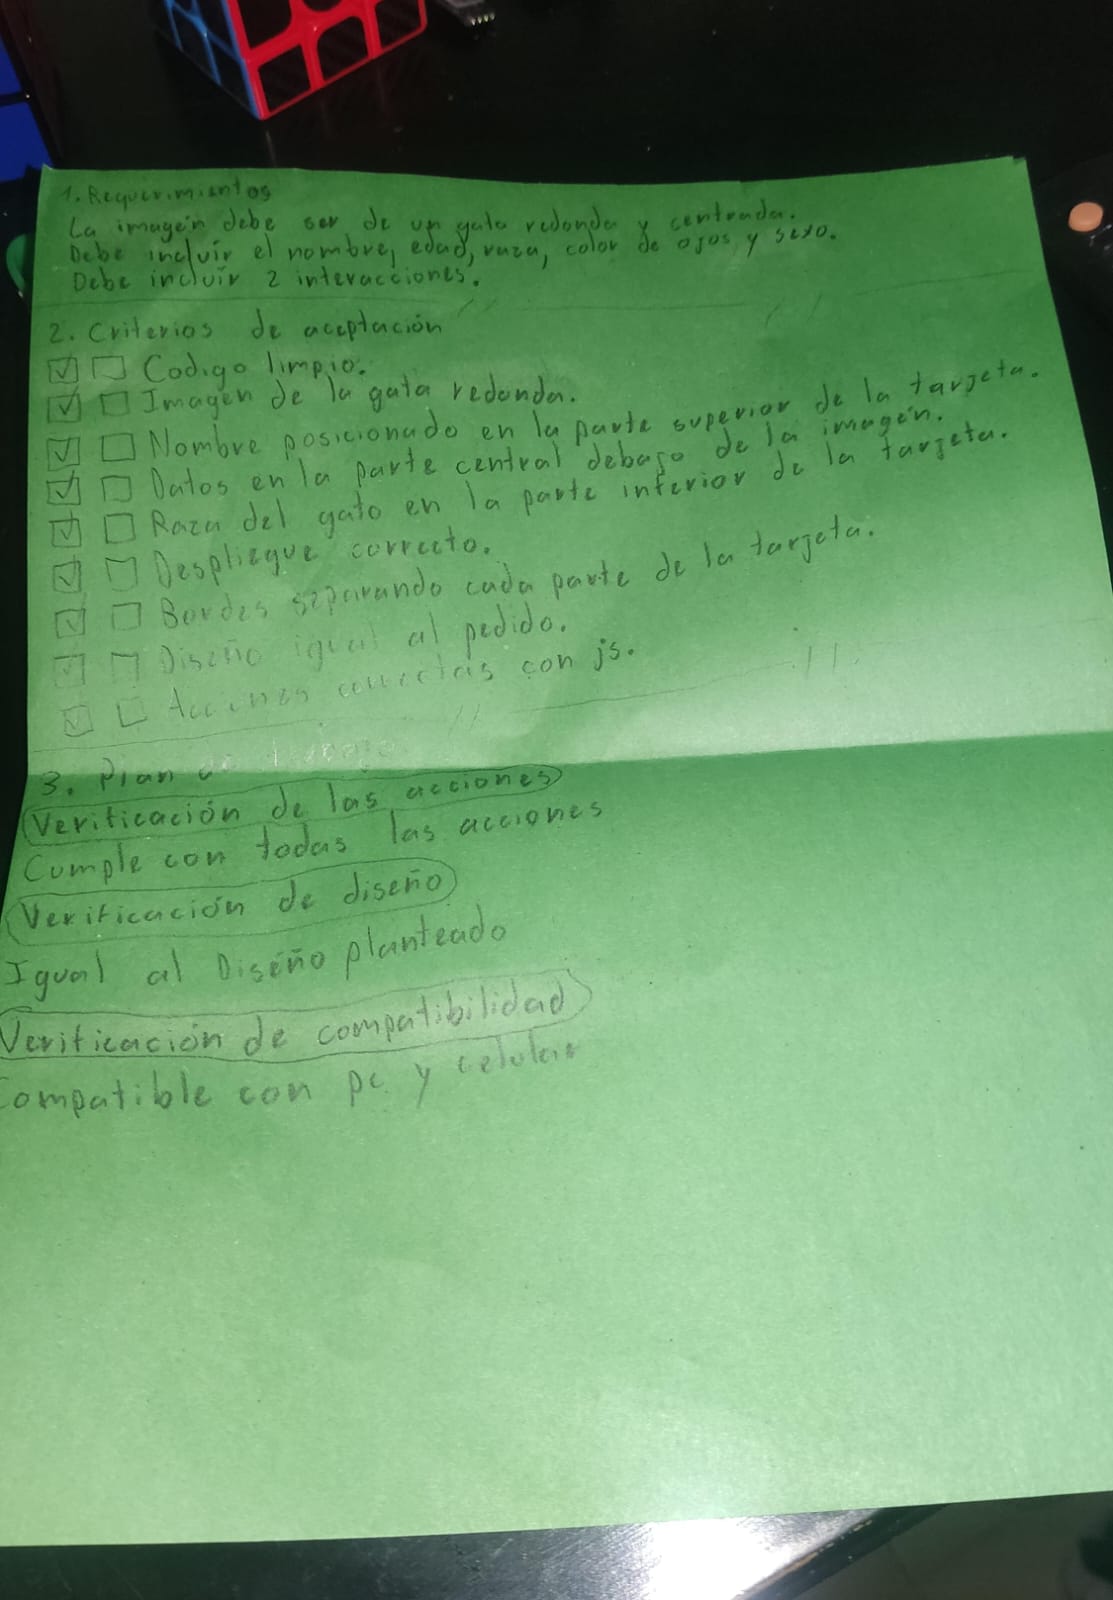 1. Requerimientos
La imagen debe ser de un gato redonda y centrada.
Debe incluir el nombre, edad, raza, color de ojos y sexo.
Debe incluir 2 interacciones.
2. Criterios de aceptación
Codigo limpio.
Imagen de la gata redonda.
Nombre posicionado en la parte superior de la tarjeta.
Datos en la parte central debajo de la imagen.
Raza del gato en la parte inferior de la tarjeta.
Despliegue correcto.
Bordes separando cada parte de la tarjeta.
Diseño igual al pedido.
Acciones correctas con js.
3. Plan de trabajo
Verificación de las acciones
Cumple con todas las acciones
Verificación de diseño
Igual al Diseño planteado
Verificación de compatibilidad
Compatible con pc y celular